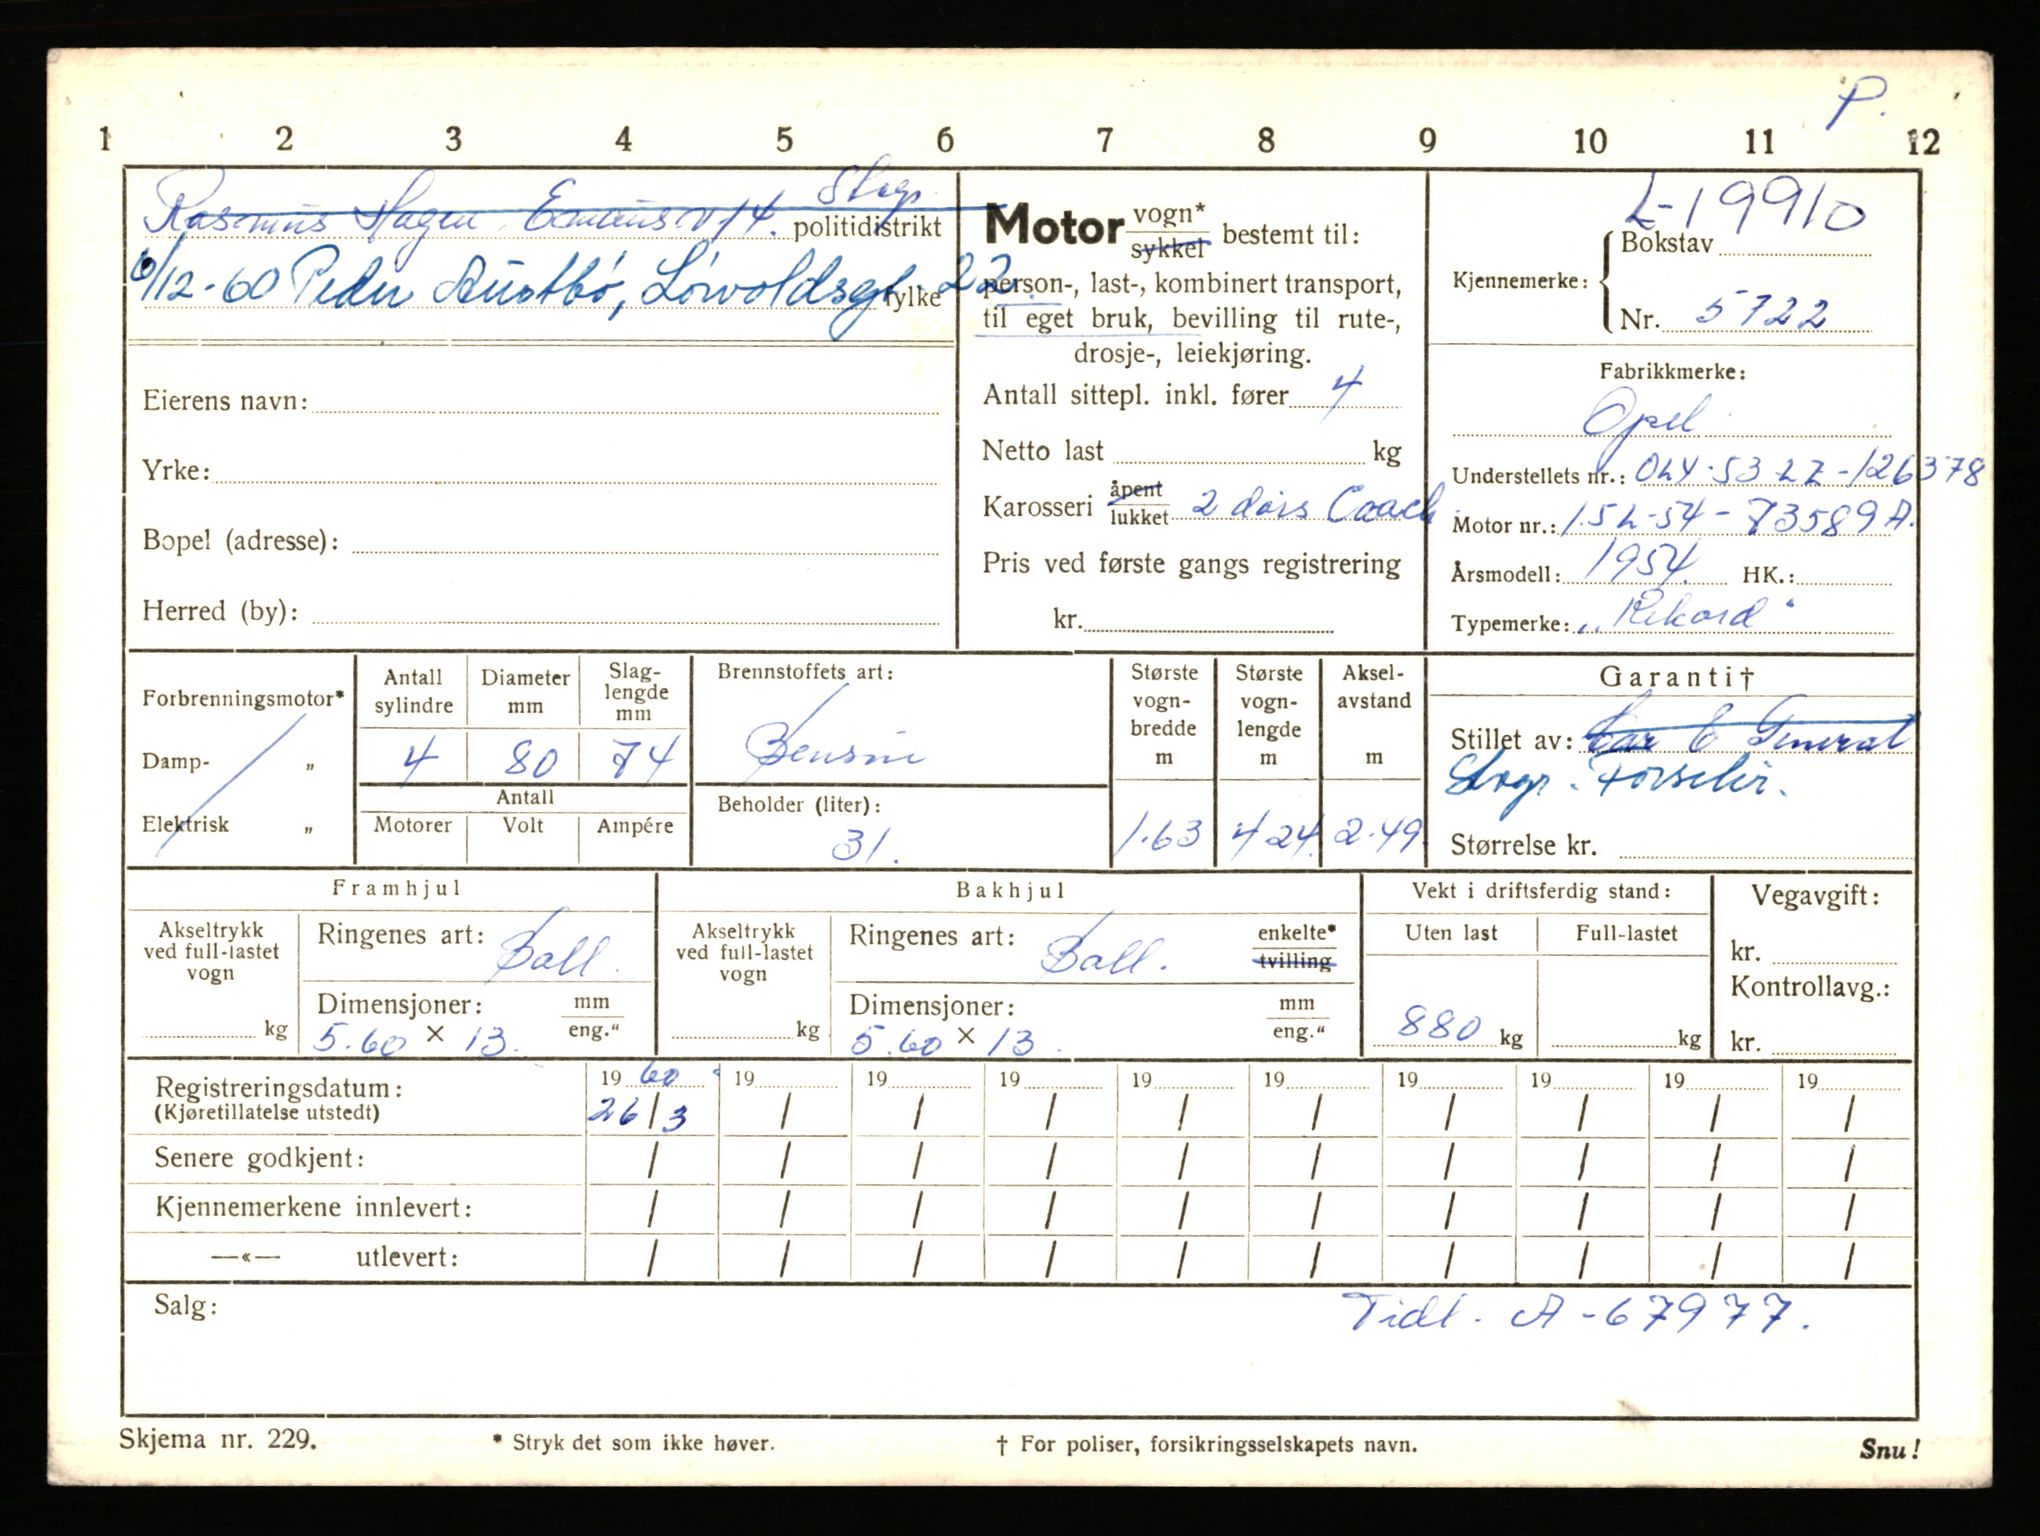 P.
1 2 3 4 5 6 7 8 9 10 11 12
Rasmus Hagen Emmausv 14. Stvgr. politidistrikt
6/12-60 Peder Austbø, Løwoldsgt. 22. fylke
Eierens navn:
Yrke:
Bopel (adresse):
Herred (by):
Motor vogn* sykkel bestemt til:
person-, last-, kombinert transport,
til eget bruk, bevilling til rute-,
drosje-, leiekjøring.
Antall sittepl. inkl. fører 4
Netto last kg
Karosseri åpent lukket 2 dørs Coach
Pris ved første gangs registrering
kr.
L-19910
Kjennemerke: Bokstav
Nr. 5722
Fabrikkmerke:
Opel
Understellets nr.: OLY-53 LZ-126378
Motor nr.: 1.5L-54-73589A.
Årsmodell: 1954. HK.:
Typemerke: „Rekord“
Forbrenningsmotor*
Damp- „
Elektrisk „
Antall sylindre 4
Diameter mm 80
Slag-lengde mm 74
Antall
Motorer Volt Ampére
Brennstoffets art:
Bensin
Beholder (liter):
31.
Største vogn-bredde m 1.63
Største vogn-lengde m 4 24
Aksel-avstand m 2.49
Garanti†
Stillet av: Car & General
Stvgr. Forseler.
Størrelse kr.
Framhjul
Akseltrykk ved full-lastet vogn kg
Ringenes art: Ball.
Dimensjoner: mm eng.“
5.60 × 13.
Bakhjul
Akseltrykk ved full-lastet vogn kg
Ringenes art: Ball. enkelte* tvilling
Dimensjoner: mm eng.“
5.60 × 13.
Vekt i driftsferdig stand:
Uten last Full-lastet
880 kg kg
Vegavgift:
kr.
Kontrollavg.:
kr.
Registreringsdatum: 19 60 19 19 19 19 19 19 19 19 19
(Kjøretillatelse utstedt) 26/3 / / / / / / / / /
Senere godkjent: / / / / / / / / / /
Kjennemerkene innlevert: / / / / / / / / / /
—«— utlevert: / / / / / / / / / /
Salg: Tidl. A-67977.
Skjema nr. 229. * Stryk det som ikke høver. † For poliser, forsikringsselskapets navn. Snu!